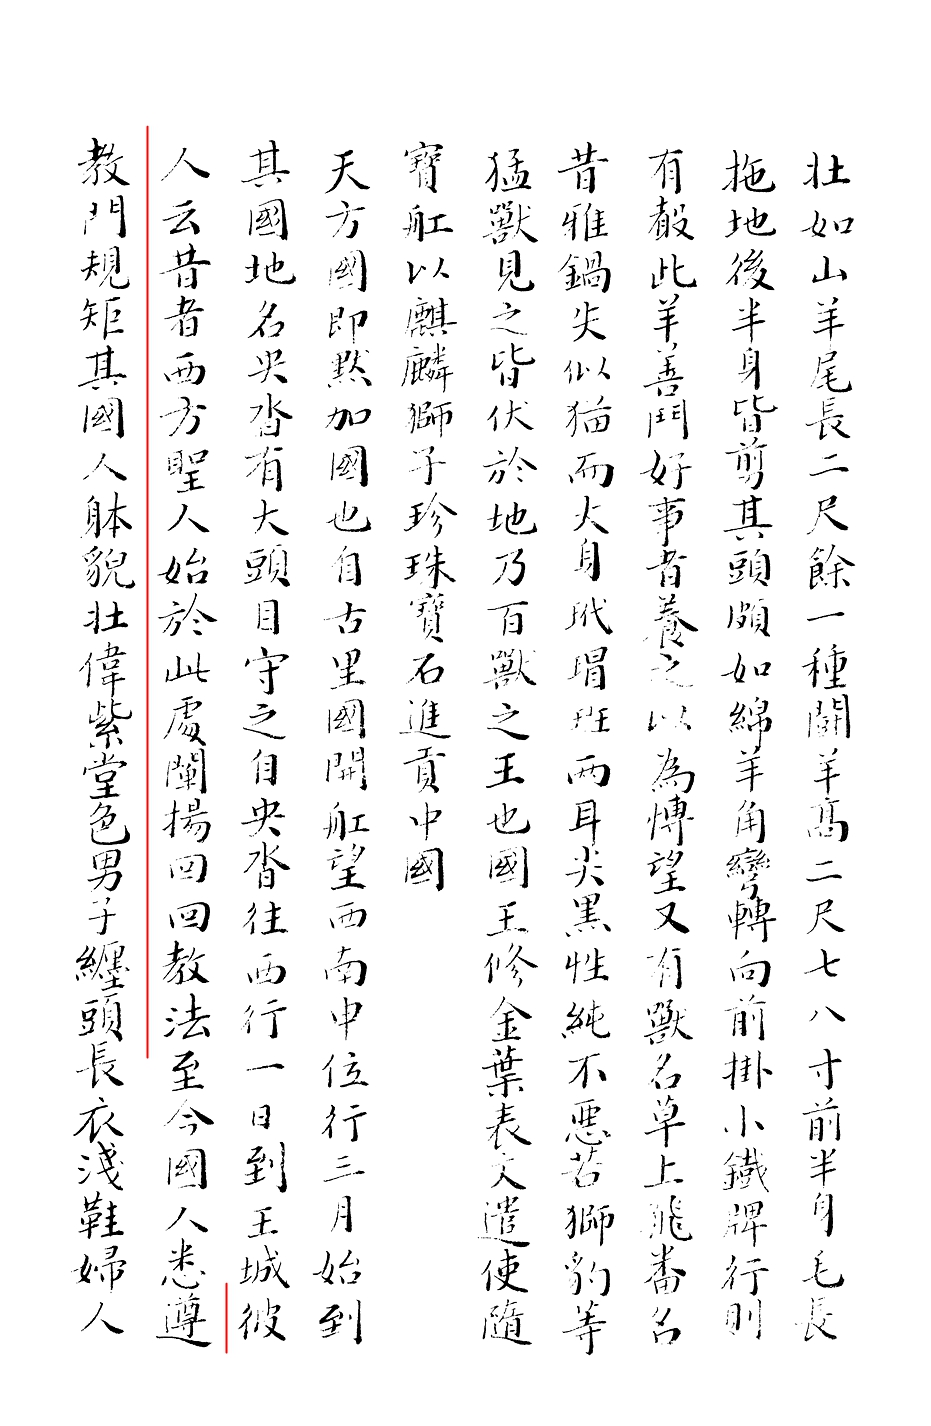 壯如山羊尾長二尺餘一種鬪羊髙二尺七八寸前半身毛長
拖地後半身皆剪其頭頗如綿羊角彎轉向前掛小鐵牌行則
有聲此羊善鬥好事者養之以為愽望又有獸名草上飛畨名
昔雅鍋失似猫而大身玳瑁班两耳尖黑性純不惡若獅豹等
猛獸見之皆伏於地乃百獸之王也國王修金葉表文遣使隨
寶舡以麒麟獅子珍珠寶石進貢中國
天方國即黙加國也自古里國開舡望西南申位行三月始到
其國地名央沓有大頭目守之自央沓往西行一日到王城彼
人云昔者西方聖人始於此處闡揚回回教法至今國人悉遵
教門規矩其國人躰貌壮偉紫堂色男子纒頭長衣淺鞋婦人